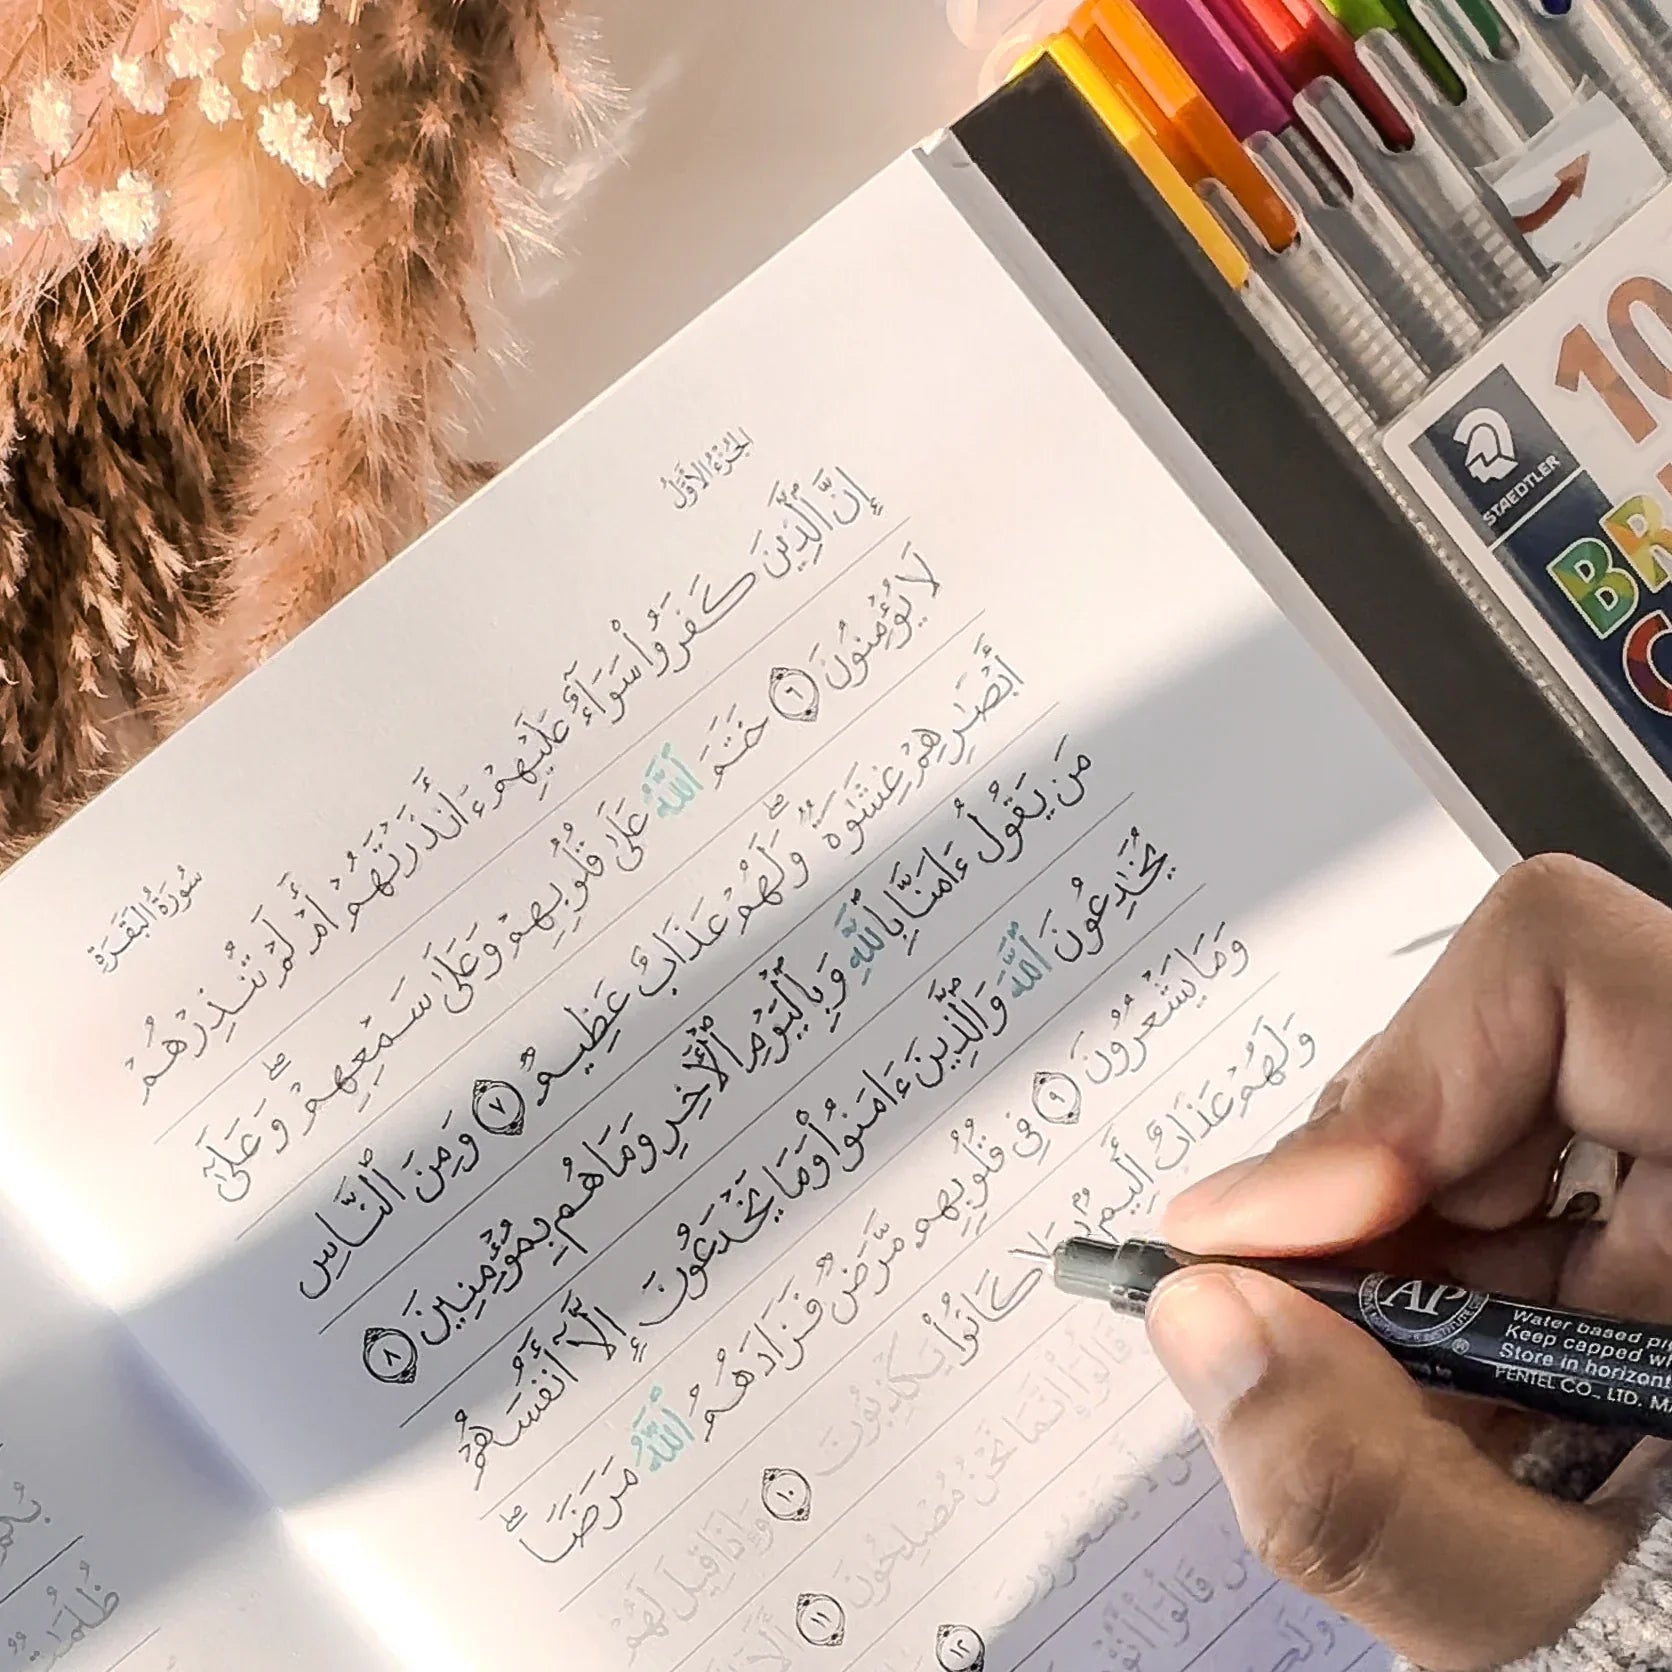 الجزء الأول
سورة البقرة
إِنَّ ٱلَّذِينَ كَفَرُوا۟ سَوَآءٌ عَلَيْهِمْ ءَأَنذَرْتَهُمْ أَمْ لَمْ تُنذِرْهُمْ
لَا يُؤْمِنُونَ ٦ خَتَمَ ٱللَّهُ عَلَىٰ قُلُوبِهِمْ وَعَلَىٰ سَمْعِهِمْ ۖ وَعَلَىٰٓ
أَبْصَٰرِهِمْ غِشَٰوَةٌ ۖ وَلَهُمْ عَذَابٌ عَظِيمٌ ٧ وَمِنَ ٱلنَّاسِ
مَن يَقُولُ ءَامَنَّا بِٱللَّهِ وَبِٱلْيَوْمِ ٱلْءَاخِرِ وَمَا هُم بِمُؤْمِنِينَ ٨
يُخَٰدِعُونَ ٱللَّهَ وَٱلَّذِينَ ءَامَنُوا۟ وَمَا يَخْدَعُونَ إِلَّآ أَنفُسَهُمْ
وَمَا يَشْعُرُونَ ٩ فِى قُلُوبِهِم مَّرَضٌ فَزَادَهُمُ ٱللَّهُ مَرَضًا ۖ
وَلَهُمْ عَذَابٌ أَلِيمٌۢ بِمَا كَانُوا۟ يَكْذِبُونَ ١٠ وَإِذَا قِيلَ لَهُمْ
قَالُوٓا۟ إِنَّمَا نَحْنُ مُصْلِحُونَ ١١ أَلَآ
لَّا يَشْعُرُونَ ١٢
قَالُوٓا۟ أَنُؤْمِنُ
ظُلُمَٰتٌ
STAEDTLER
10
BR
C
AP
Water based pi
Keep capped wh
Store in horizont
PENTEL CO., LTD. MA